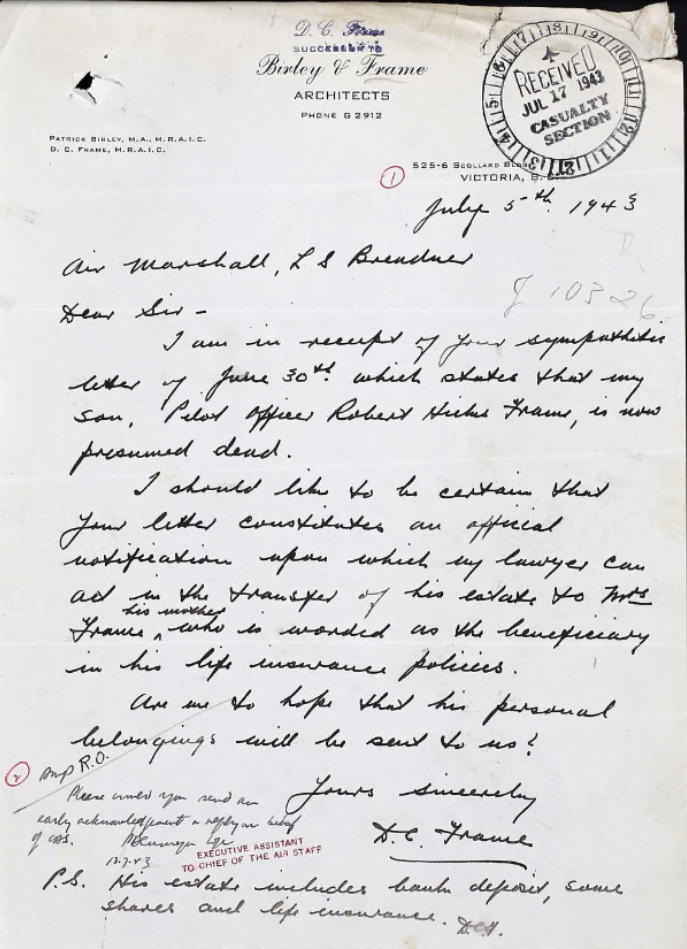 D. C. Frame
SUCCESSOR TO
Birley & Frame
ARCHITECTS
PHONE G 2912
PATRICK BIRLEY, M.A., M.R.A.I.C.
D. C. FRAME, M.R.A.I.C.
525-6 SCOLLARD BLDG
VICTORIA, B.C.
RECEIVED
JUL 17 1943
CASUALTY
SECTION
1
July 5th. 1943
Air Marshall, L S Breadner
J 10326
Dear Sir -
I am in receipt of your sympathetic
letter of June 30th. which states that my
son, Pilot Officer Robert Frame, is now
presumed dead.
I should like to be certain that
your letter constitutes an official
notification upon which my lawyer can
act in the transfer of his estate to Mrs
his mother
Frame ^ who is worded as the beneficiary
in his life insurance policies.
Are we to hope that his personal
belongings will be sent to us?
2
R.O.
Please would you send an
early acknowledgement & reply on behalf
of CAS.
12.7.43
EXECUTIVE ASSISTANT
TO CHIEF OF THE AIR STAFF
Yours sincerely
D.C. Frame
P.S. His estate includes bank deposit, some
shares and life insurance. D.C.F.